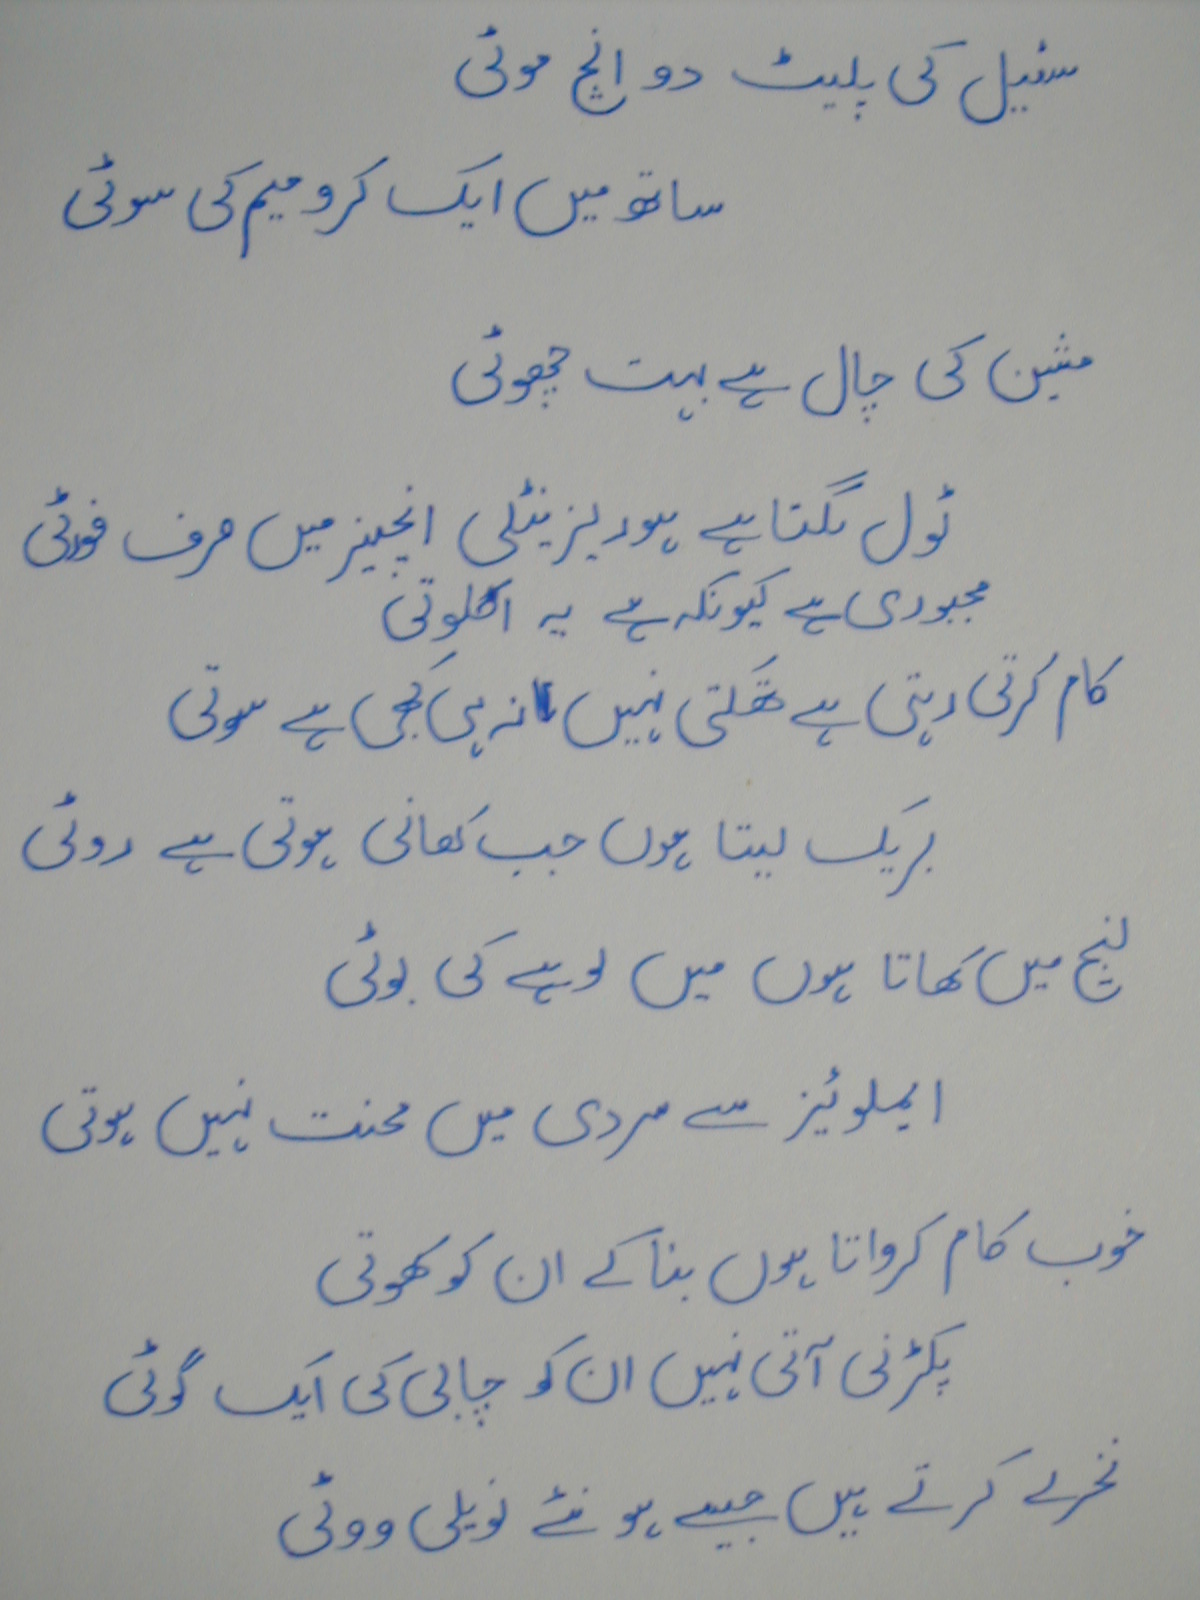 سٹیل کی پلیٹ دو انچ موٹی
ساتھ میں ایک کرومیم کی سوٹی
مشین کی چال ہے بہت چھوٹی
ٹول لگتا ہے ہوریزینٹلی انچیز میں صرف فورٹی
مجبوری ہے کیونکہ ہے یہ اکلوتی
کام کرتی رہتی ہے تھکتی نہیں نہ ہی کبھی ہے سوتی
بریک لیتا ہوں جب کھانی ہوتی ہے روٹی
لنچ میں کھاتا ہوں میں لوہے کی بوٹی
ایمپلوئیز سے سردی میں محنت نہیں ہوتی
خوب کام کرواتا ہوں بنا کے ان کو کھوتی
پکڑنی آتی نہیں ان کو چابی کی ایک گوٹی
نخرے کرتے ہیں جیسے ہو نئے نویلی ووٹی